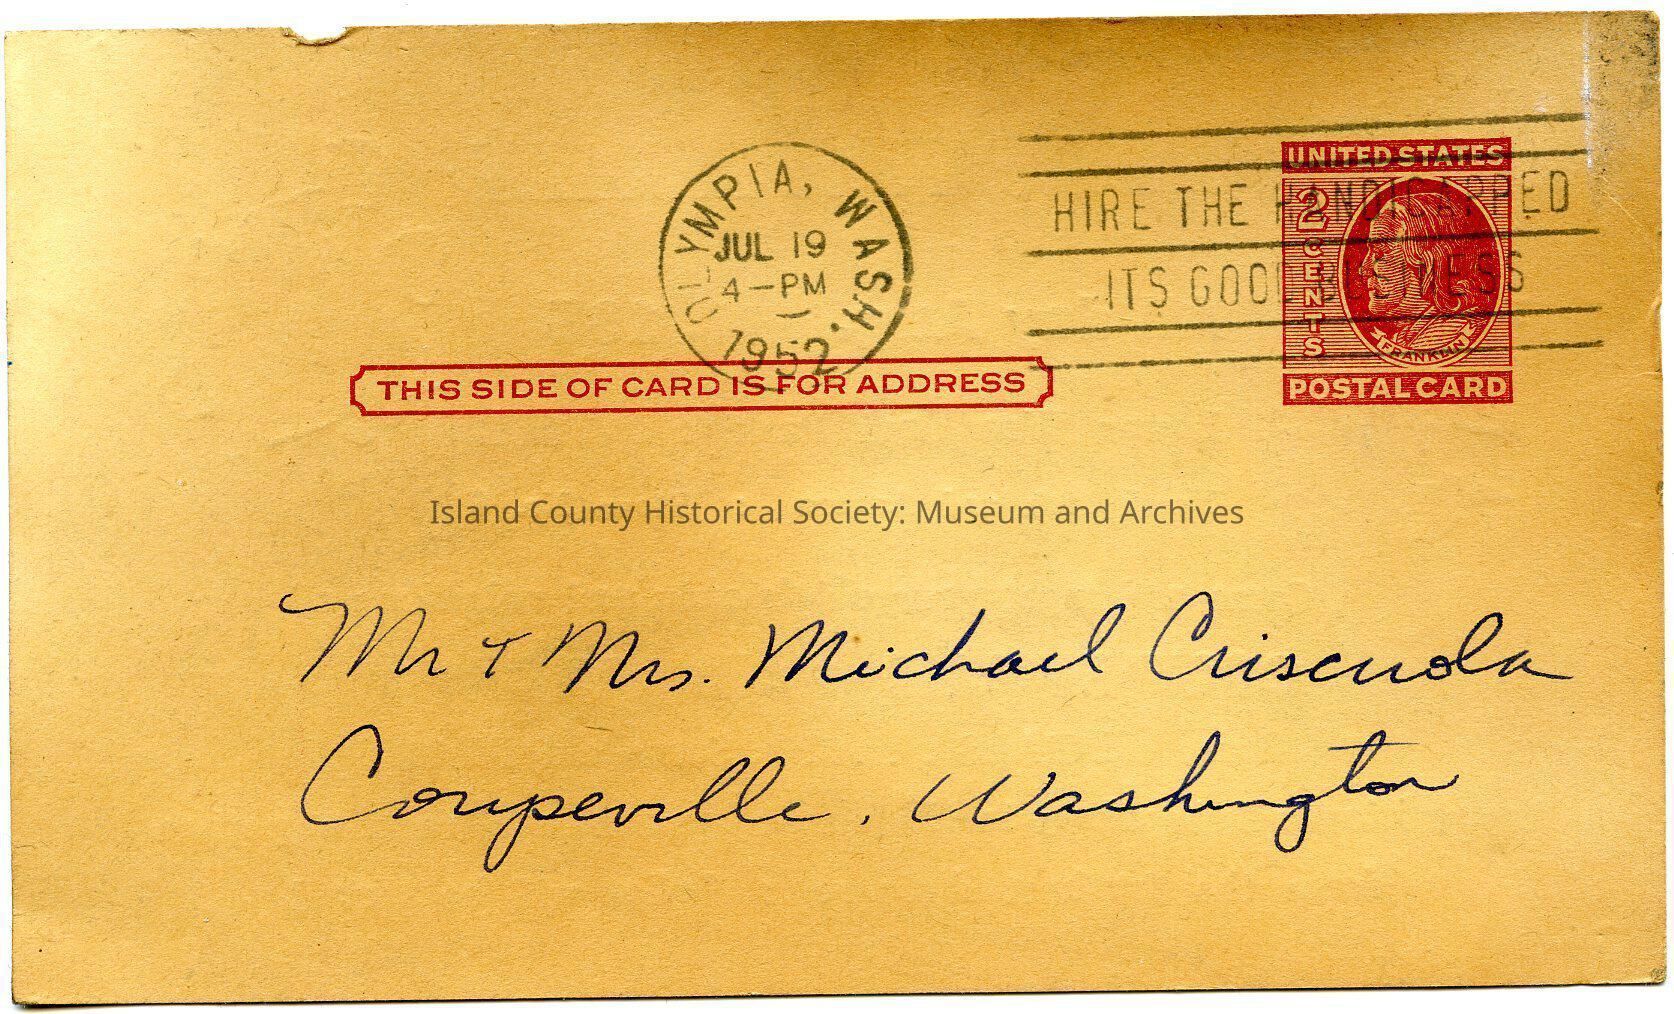 OLYMPIA, WASH.
JUL 19
4-PM
1952
HIRE THE HANDICAPPED
ITS GOOD BUSINESS
UNITED STATES
2 CENTS
FRANKLIN
POSTAL CARD
THIS SIDE OF CARD IS FOR ADDRESS
Island County Historical Society: Museum and Archives
Mr + Mrs. Michael Criscuola
Coupeville, Washington